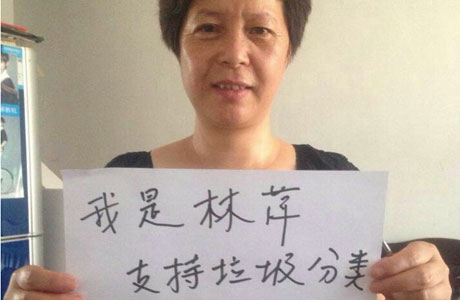 我是林萍
支持垃圾分类